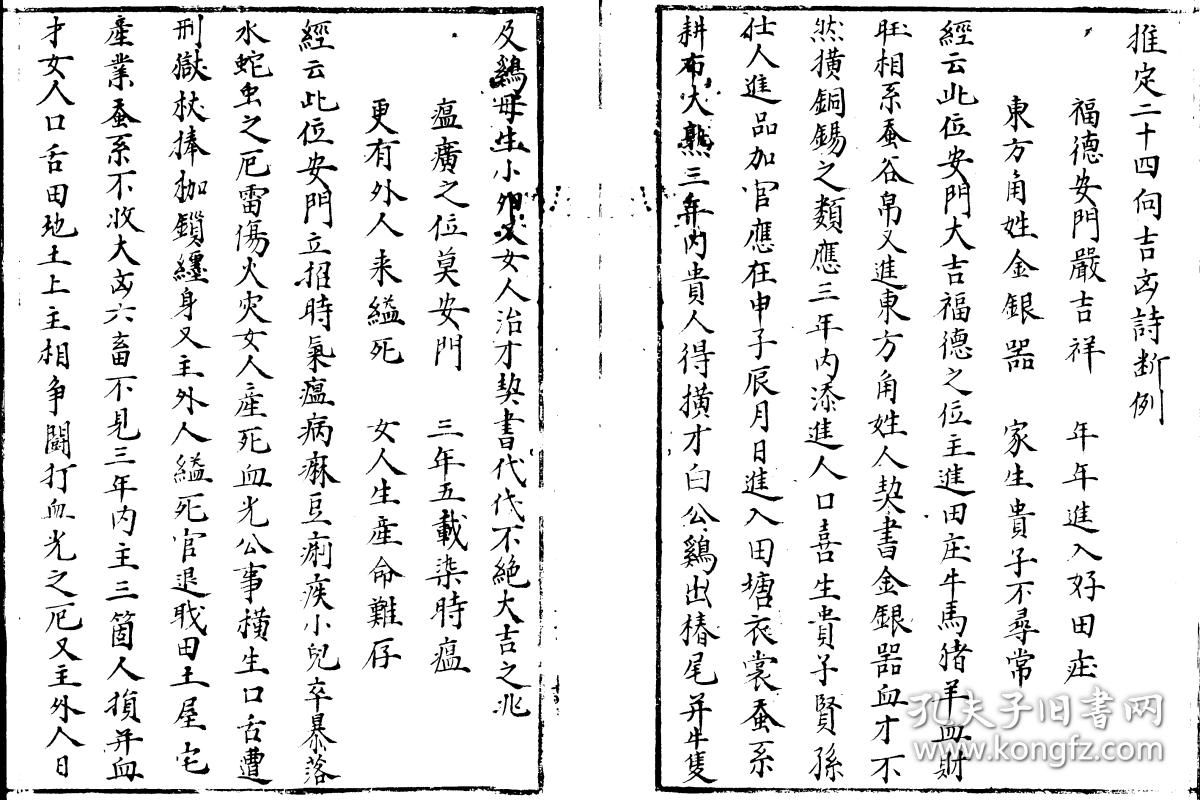 推定二十四向吉凶詩断例
福德安門嚴吉祥　年年進入好田庄
東方角姓金銀器　家生貴子不尋常
經云此位安門大吉福德之位主進田庄牛馬猪羊血財
旺相系蚕谷帛又進東方角姓人契書金銀器血才不
然橫銅錫之類應三年內添進人口喜生貴子賢孫
仕人進品加官應在申子辰月日進入田塘衣裳蚕系
耕布大熟三年內貴人得橫才白公鷄出椿尾并牛隻
及鷄母生小卵又女人治才契書代代不絕大吉之兆
瘟㾮之位莫安門　三年五載染時瘟
更有外人来縊死　女人生產命難存
經云此位安門立招時氣瘟病痳豆痢疾小兒卒暴落
水蛇虫之厄雷傷火灾女人產死血光公事橫生口舌遭
刑獄杖捧枷鎖纏身又主外人縊死官退戝田土屋宅
產業蚕系不收大凶六畜不見三年內主三箇人損并血
才女人口舌田地土上主相争鬪打血光之厄又主外人日
孔夫子旧书网
www.kongfz.com